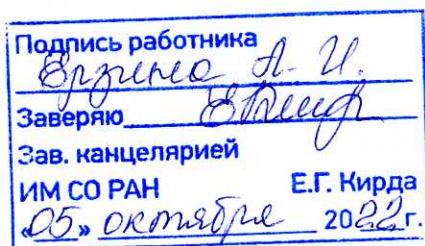 Подпись работника
Ерзина А. И.
Заверяю
Зав. канцелярией
ИМ СО РАН Е.Г. Кирда
«05» октября 2022г.